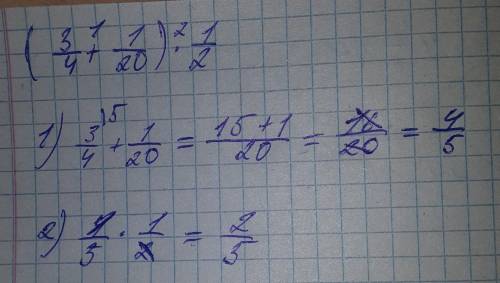 ( 3/4 +¹ 1/20 ) ·² 1/2
1) 3/4 ⁾⁵ + 1/20 = 15 + 1/20 = 16/20 = 4/5
2) 4/5 · 1/2 = 2/5